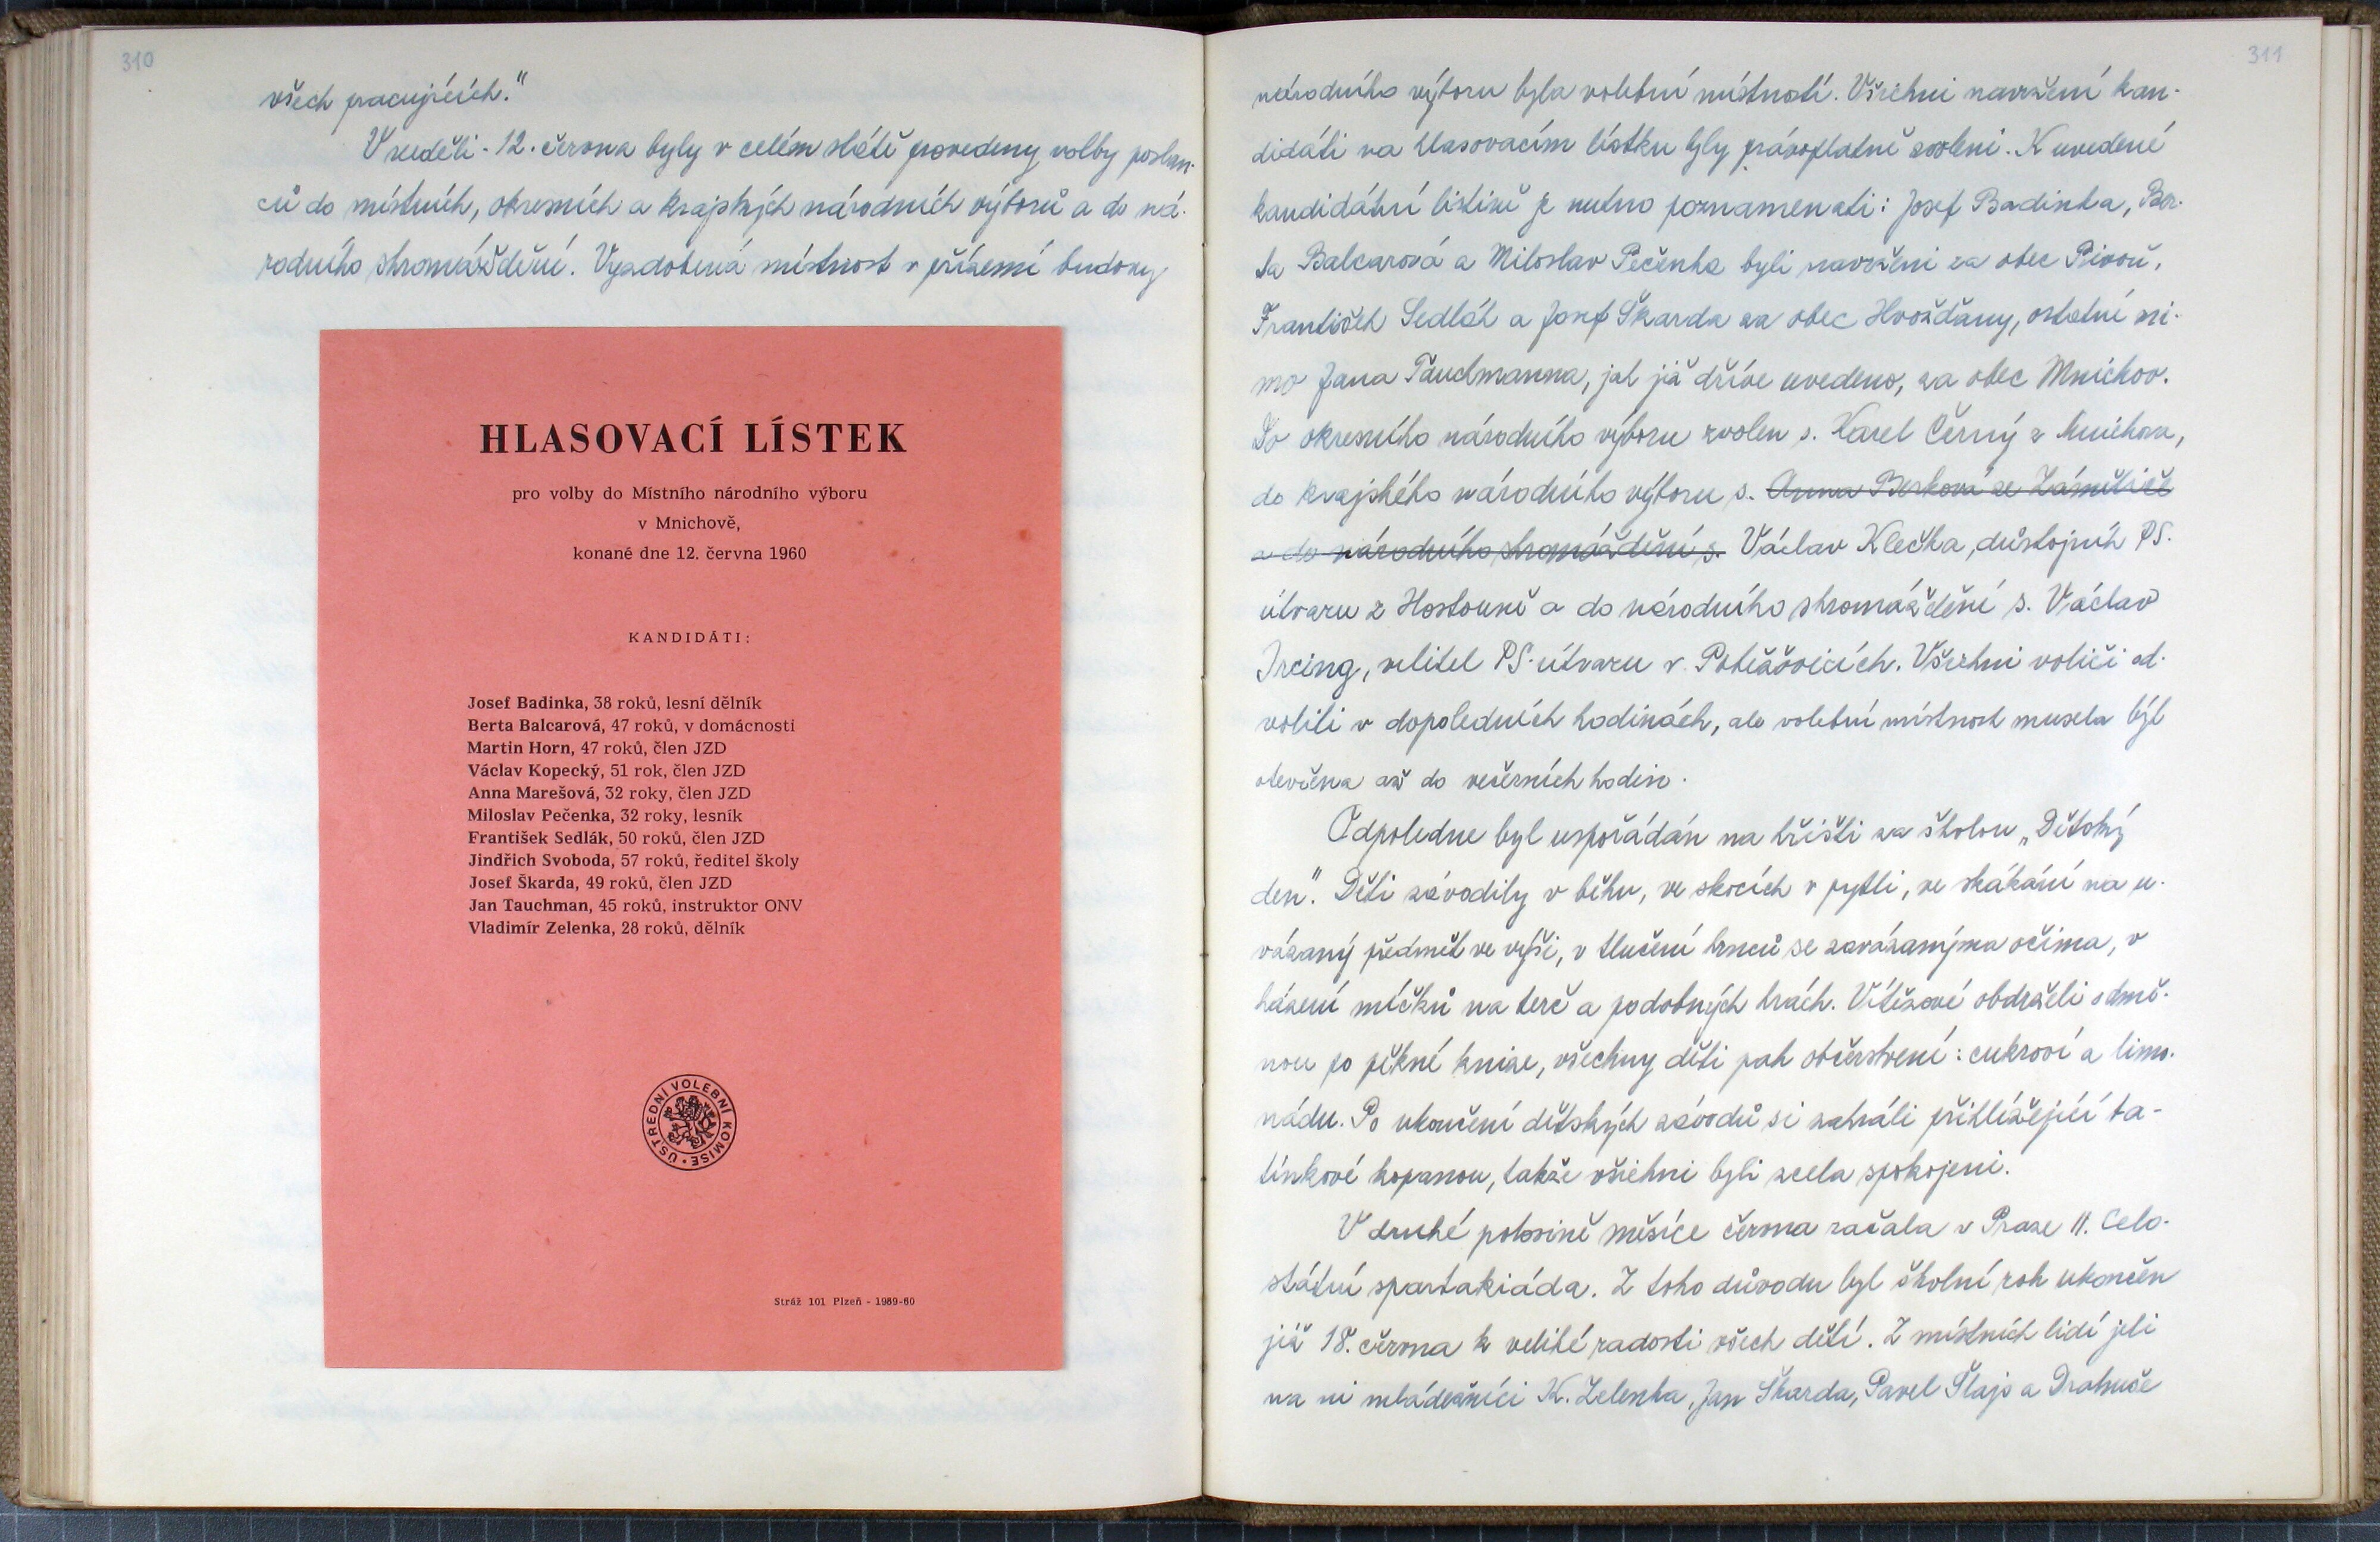 310
všech pracujících."
V neděli - 12. června byly v celém státě provedeny volby poslan-
ců do místních, okresních a krajských národních výborů a do ná-
rodního shromáždění. Vyzdobená místnost v přízemí budovy
HLASOVACÍ LÍSTEK
pro volby do Místního národního výboru
v Mnichově,
konané dne 12. června 1960
KANDIDÁTI:
Josef Badinka, 38 roků, lesní dělník
Berta Balcarová, 47 roků, v domácnosti
Martin Horn, 47 roků, člen JZD
Václav Kopecký, 51 rok, člen JZD
Anna Marešová, 32 roky, člen JZD
Miloslav Pečenka, 32 roky, lesník
František Sedlák, 50 roků, člen JZD
Jindřich Svoboda, 57 roků, ředitel školy
Josef Škarda, 49 roků, člen JZD
Jan Tauchman, 45 roků, instruktor ONV
Vladimír Zelenka, 28 roků, dělník
ÚSTŘEDNÍ VOLEBNÍ KOMISE
Stráž 101 Plzeň - 1989-60
311
národního výboru byla volební místností. Všichni navržení kan-
didáti na hlasovacím lístku byly právoplatně zvoleni. K uvedené
kandidátní listině je nutno poznamenati: Josef Badinka, Ber-
ta Balcarová a Miloslav Pečenka byli navrženi za obec Pivoň,
František Sedlák a Josef Škarda za obec Hvožďany, ostatní mi-
mo Jana Tauchmanna, jak již dříve uvedeno, za obec Mnichov.
Do okresního národního výboru zvolen s. Karel Černý z Mnichova,
do krajského národního výboru s. Anna Berková ze Zámělíče
a do národního shromáždění s. Václav Klečka, důstojník PS.
útvaru z Hostouně a do národního shromáždění s. Václav
Ircing, velitel PS-útvaru v Poběžovicích. Všichni voliči od-
volili v dopoledních hodinách, ale volební místnost musela být
otevřena až do večerních hodin.
Odpoledne byl uspořádán na hřišti za školou „Dětský
den". Děti závodily v běhu, ve skocích v pytli, ve skákání na u-
vázaný předmět ve výši, v tlučení hrnců se zavázanýma očima, v
házení míčků na terč a podobných hrách. Vítězové obdrželi odmě-
nou po pěkné knize, všechny děti pak občerstvení: cukroví a limo-
nádu. Po ukončení dětských závodů si zahráli přihlížející ta-
tínkové kopanou, takže všichni byli zcela spokojeni.
V druhé polovině měsíce června začala v Praze II. Celo-
státní spartakiáda. Z toho důvodu byl školní rok ukončen
již 18. června k veliké radosti všech dětí. Z místních lidí jeli
na ni mládežníci K. Zelenka, Jan Škarda, Pavel Šlajs a Drahuše